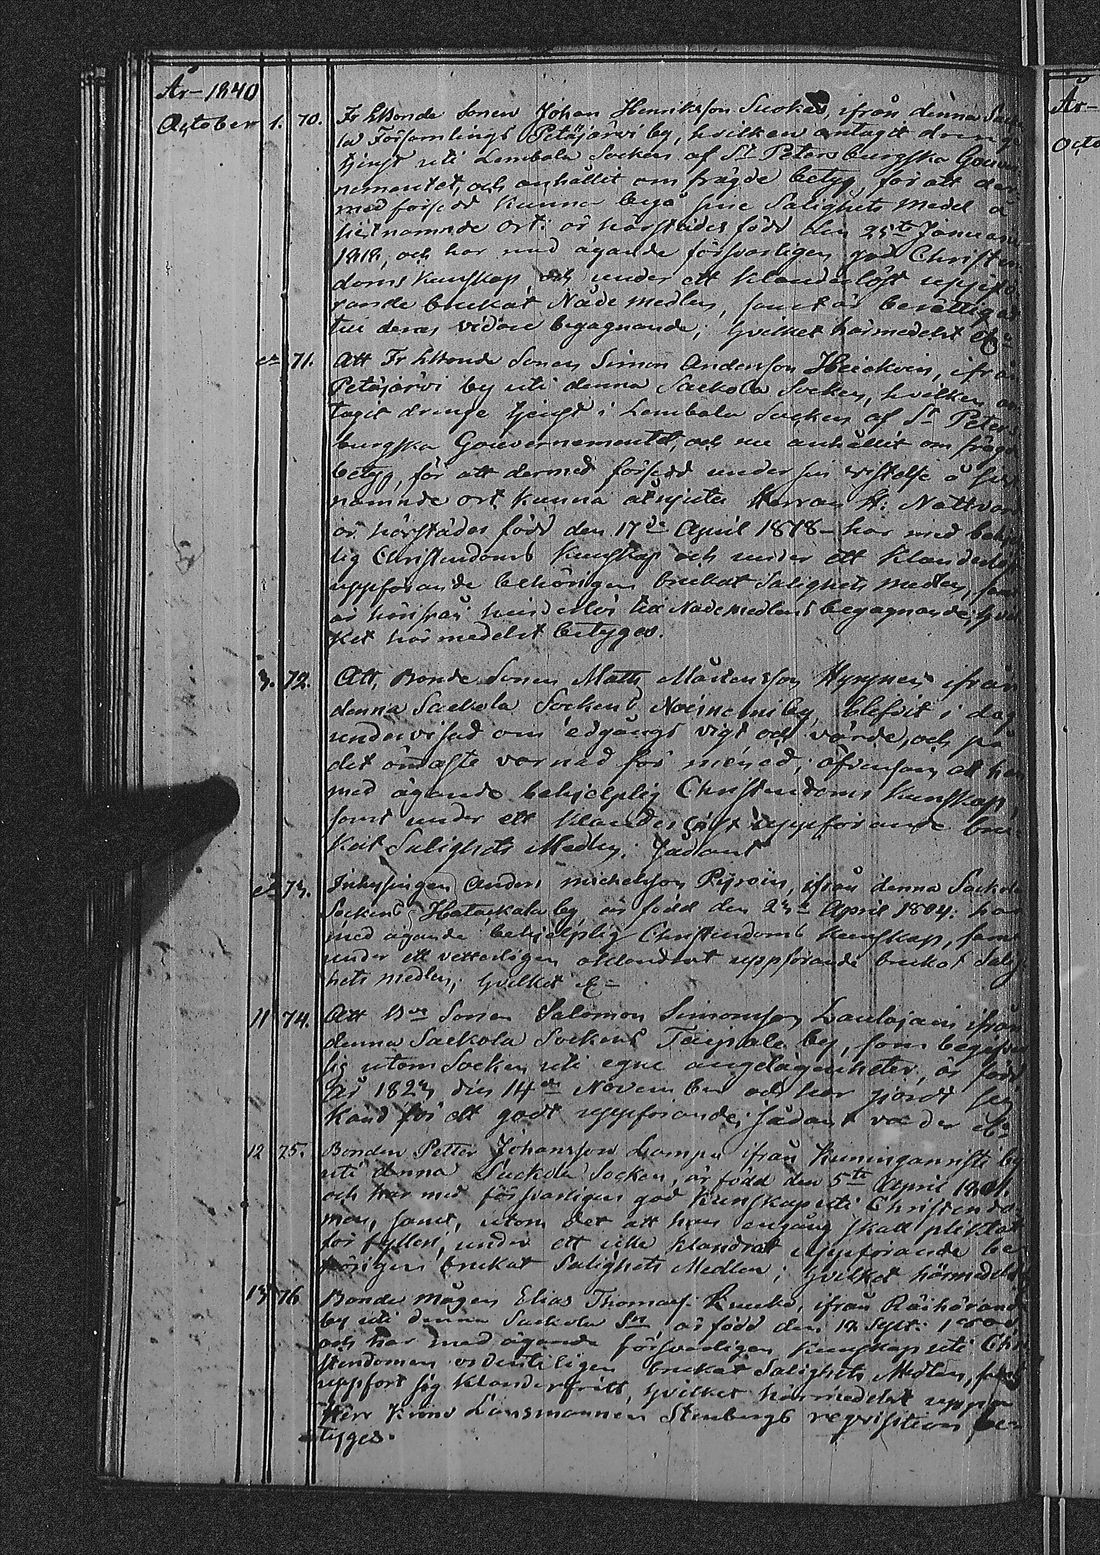 År 1840
October 1. 70. Fr Skbonde Sonen Johan Henriksson Suokas, ifrån denna Sacko-
la Församlings Petäjärvi by, hvilken antagit dreng
tjenst uti Lembala Socken af St Petersburgska Gouver-
nementet, och anhållit om frägde betyg, för att der-
med försedd kunna begå sine Salighets Medel å
sist namnde Ort: är härstädes född den 25te Januarii
1818, och har med ägande försvarligen god Christen-
doms kunskap och under ett klanderlöst uppfö-
rande brukat Nådemedlen, samt är berättigad
till deras vidare begagnande; hvilket härmedelst &c
d° 71. Att Fr Skbonde Sonen Simon Andersson Heickoin, ifrån
Petäjärvi by uti denna Sackola Socken, hvilken an-
tagit drenge tjenst i Lembala Socken af St Peters-
burgska Gouvernementet, och nu anhållit om frägd
betyg, för att dermed försedd under sin vistelse å sist
namnde ort kunna åtnjuta Herrans H. Nattvard
är härstädes född den 17de April 1818 har med behje-
lig Christendoms kunskap och under ett klanderlöst
uppförande behörigen brukat Salighets medlen, samt
är härifrån hinderlös till Nådemedlens begagnande; hvil-
ket härmedelst betygas.
3. 72. Att, Bonde Sonen Matts Mårtensson Hyppen ifrån
denna Sackola Sockens Noisniemi by, blefvit i dag
undervisad om edgångs vigt och värde, och på
det ömaste varnad för mened; äfvensom att han
med ägande behjelplig Christendoms kunskap,
samt under ett klanderlöst uppförande bru-
kat Salighets Medlen; Sådant
d° 73. Inhysingen Anders Michelsson Pyroin, ifrån denna Sackola
Sockens Hatackala by, är född den 23de April 1804. har
med ägande behjelplig Christendoms kunskap, samt
under ett vetterligen oklandrat uppförande brukat Salig-
hets medlen; hvilket &c
11 74. Att Bde Sonen Salomon Simonsson Laulajain ifrån
denna Sackola Sockens Taipale by, som begifver
sig utom Socken uti egne angelägenheter, är född
År 1823 den 14de November och har gjordt sig
känd för ett godt uppförande; sådant varder &c
12 75. Bonden Petter Johansson Lampu ifrån Kuninganristi by
uti denna Sackola Socken, är född den 5te April 1801.
och har med försvarligen god kunskap uti Christendo-
men, samt, utom det att han engång skall pliktat
för fylleri, under ett icke klandrat uppförande be-
hörigen brukat Salighets Medlen; hvilket härmedelst
13 76 Bonde Mågen Elias Thomass. Kuuko, ifrån Räihäranda
by uti denna Sackola Sn är född den 12 Sept:
och har med ägande försvarligen kunskap uti Chri-
stendomen ordenteligen brukat Salighets Medlen, samt
uppfört sig klanderfritt, hvilket härmedelst uppå
Herr Krono Länsmannen Stenbergs reqvisition be-
tygas.
År
Octo